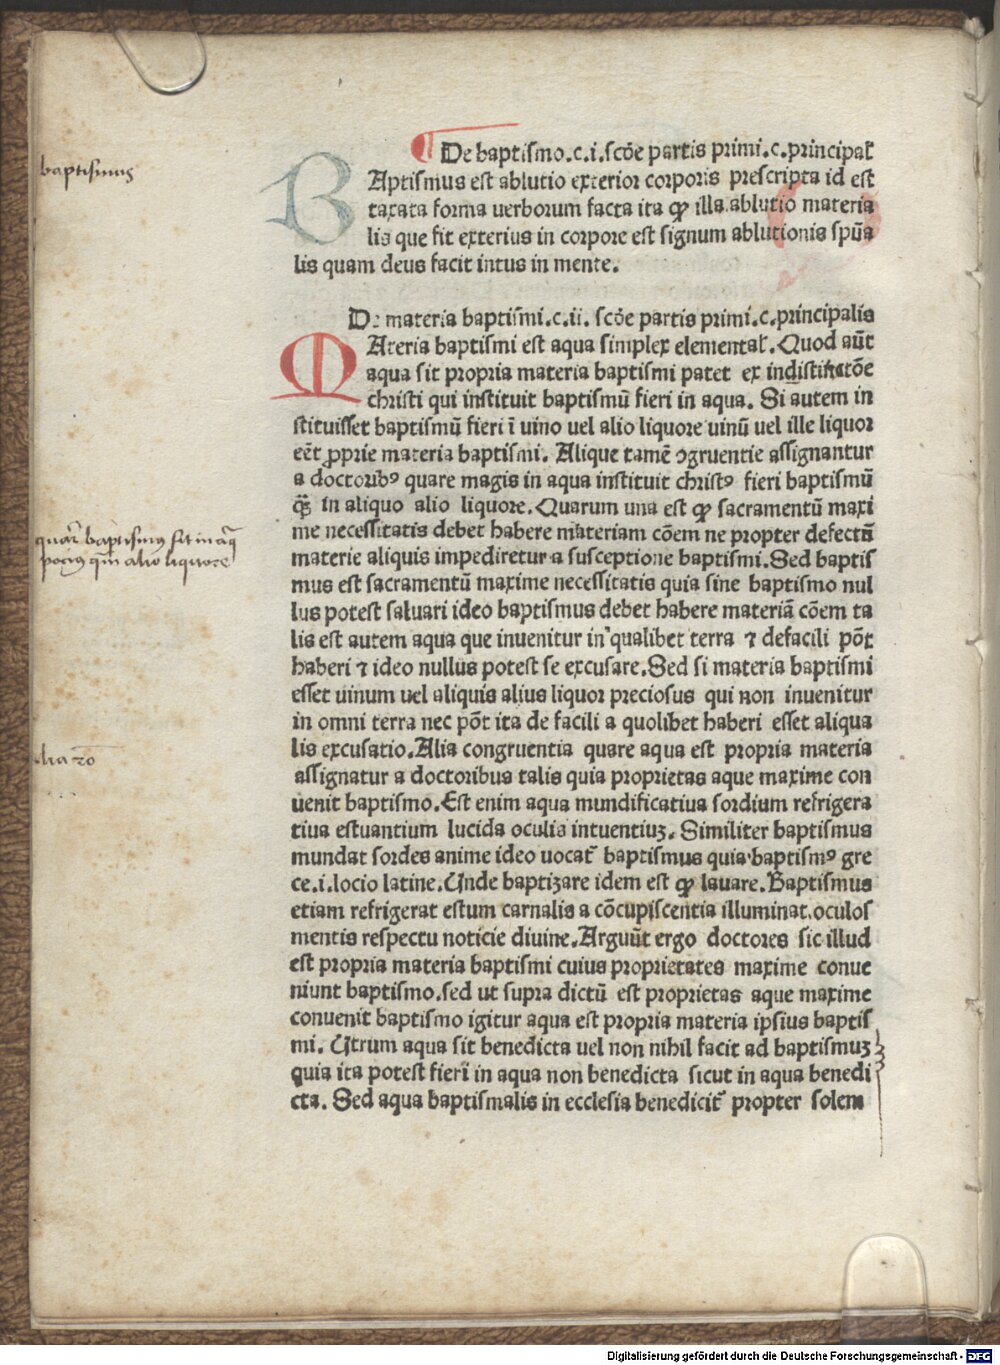 baptismus
¶ De baptismo.c.i.scōe partis primi.c.principal̄
BAptismus est ablutio exterior corporis prescripta id est
taxata forma uerborum facta ita ꝙ illa ablutio materia
lis que fit exterius in corpore est signum ablutionis spūa
lis quam deus facit intus in mente.
De materia baptismi.c.ii. scōe partis primi.c.principalis
MAteria baptismi est aqua simplex elemental̄. Quod aūt
aqua sit propria materia baptismi patet ex indistinctōe
christi qui instituit baptismū fieri in aqua. Si autem in
stituisset baptismū fieri ī uino uel alio liquore uinū uel ille liquor
eēt ꝓprie materia baptismi. Alique tamē ꝯgruentie assignantur
a doctoribꝰ quare magis in aqua instituit christꝰ fieri baptismū
q̄ꝫ in aliquo alio liquore. Quarum una est ꝙ sacramentū maxi
me necessitatis debet habere materiam cōem ne propter defectū
materie aliquis impediretur a susceptione baptismi. Sed baptis
mus est sacramentū maxime necessitatis quia sine baptismo nul
lus potest saluari ideo baptismus debet habere materiā cōem ta
lis est autem aqua que inuenitur in qualibet terra ⁊ defacili pōt
haberi ⁊ ideo nullus potest se excusare. Sed si materia baptismi
esset uinum uel aliquis alius liquor preciosus qui non inuenitur
in omni terra nec pōt ita de facili a quolibet haberi esset aliqua
lis excusatio. Alia congruentia quare aqua est propria materia
assignatur a doctoribus talis quia proprietas aque maxime con
uenit baptismo. Est enim aqua mundificatiua sordium refrigera
tiua estuantium lucida oculis intuentiuꝫ. Similiter baptismus
mundat sordes anime ideo uocat᷑ baptismus quia baptismꝰ gre
ce.i.locio latine. Unde baptizare idem est ꝙ lauare. Baptismus
etiam refrigerat estum carnalis a cōcupiscentia illuminat oculos
mentis respectu noticie diuine. Arguūt ergo doctores sic illud
est propria materia baptismi cuius proprietates maxime conue
niunt baptismo. sed ut supra dictū est proprietas aque maxime
conuenit baptismo igitur aqua est propria materia ipsius baptis
mi. Utrum aqua sit benedicta uel non nihil facit ad baptismuꝫ
quia ita potest fieri in aqua non benedicta sicut in aqua benedi
cta. Sed aqua baptismalis in ecclesia benedicit᷑ propter solem
quar̄ baptismus fit in aq̄
pociꝰ qm̄ alio liquore
alia rō
Digitalisierung gefördert durch die Deutsche Forschungsgemeinschaft - DFG